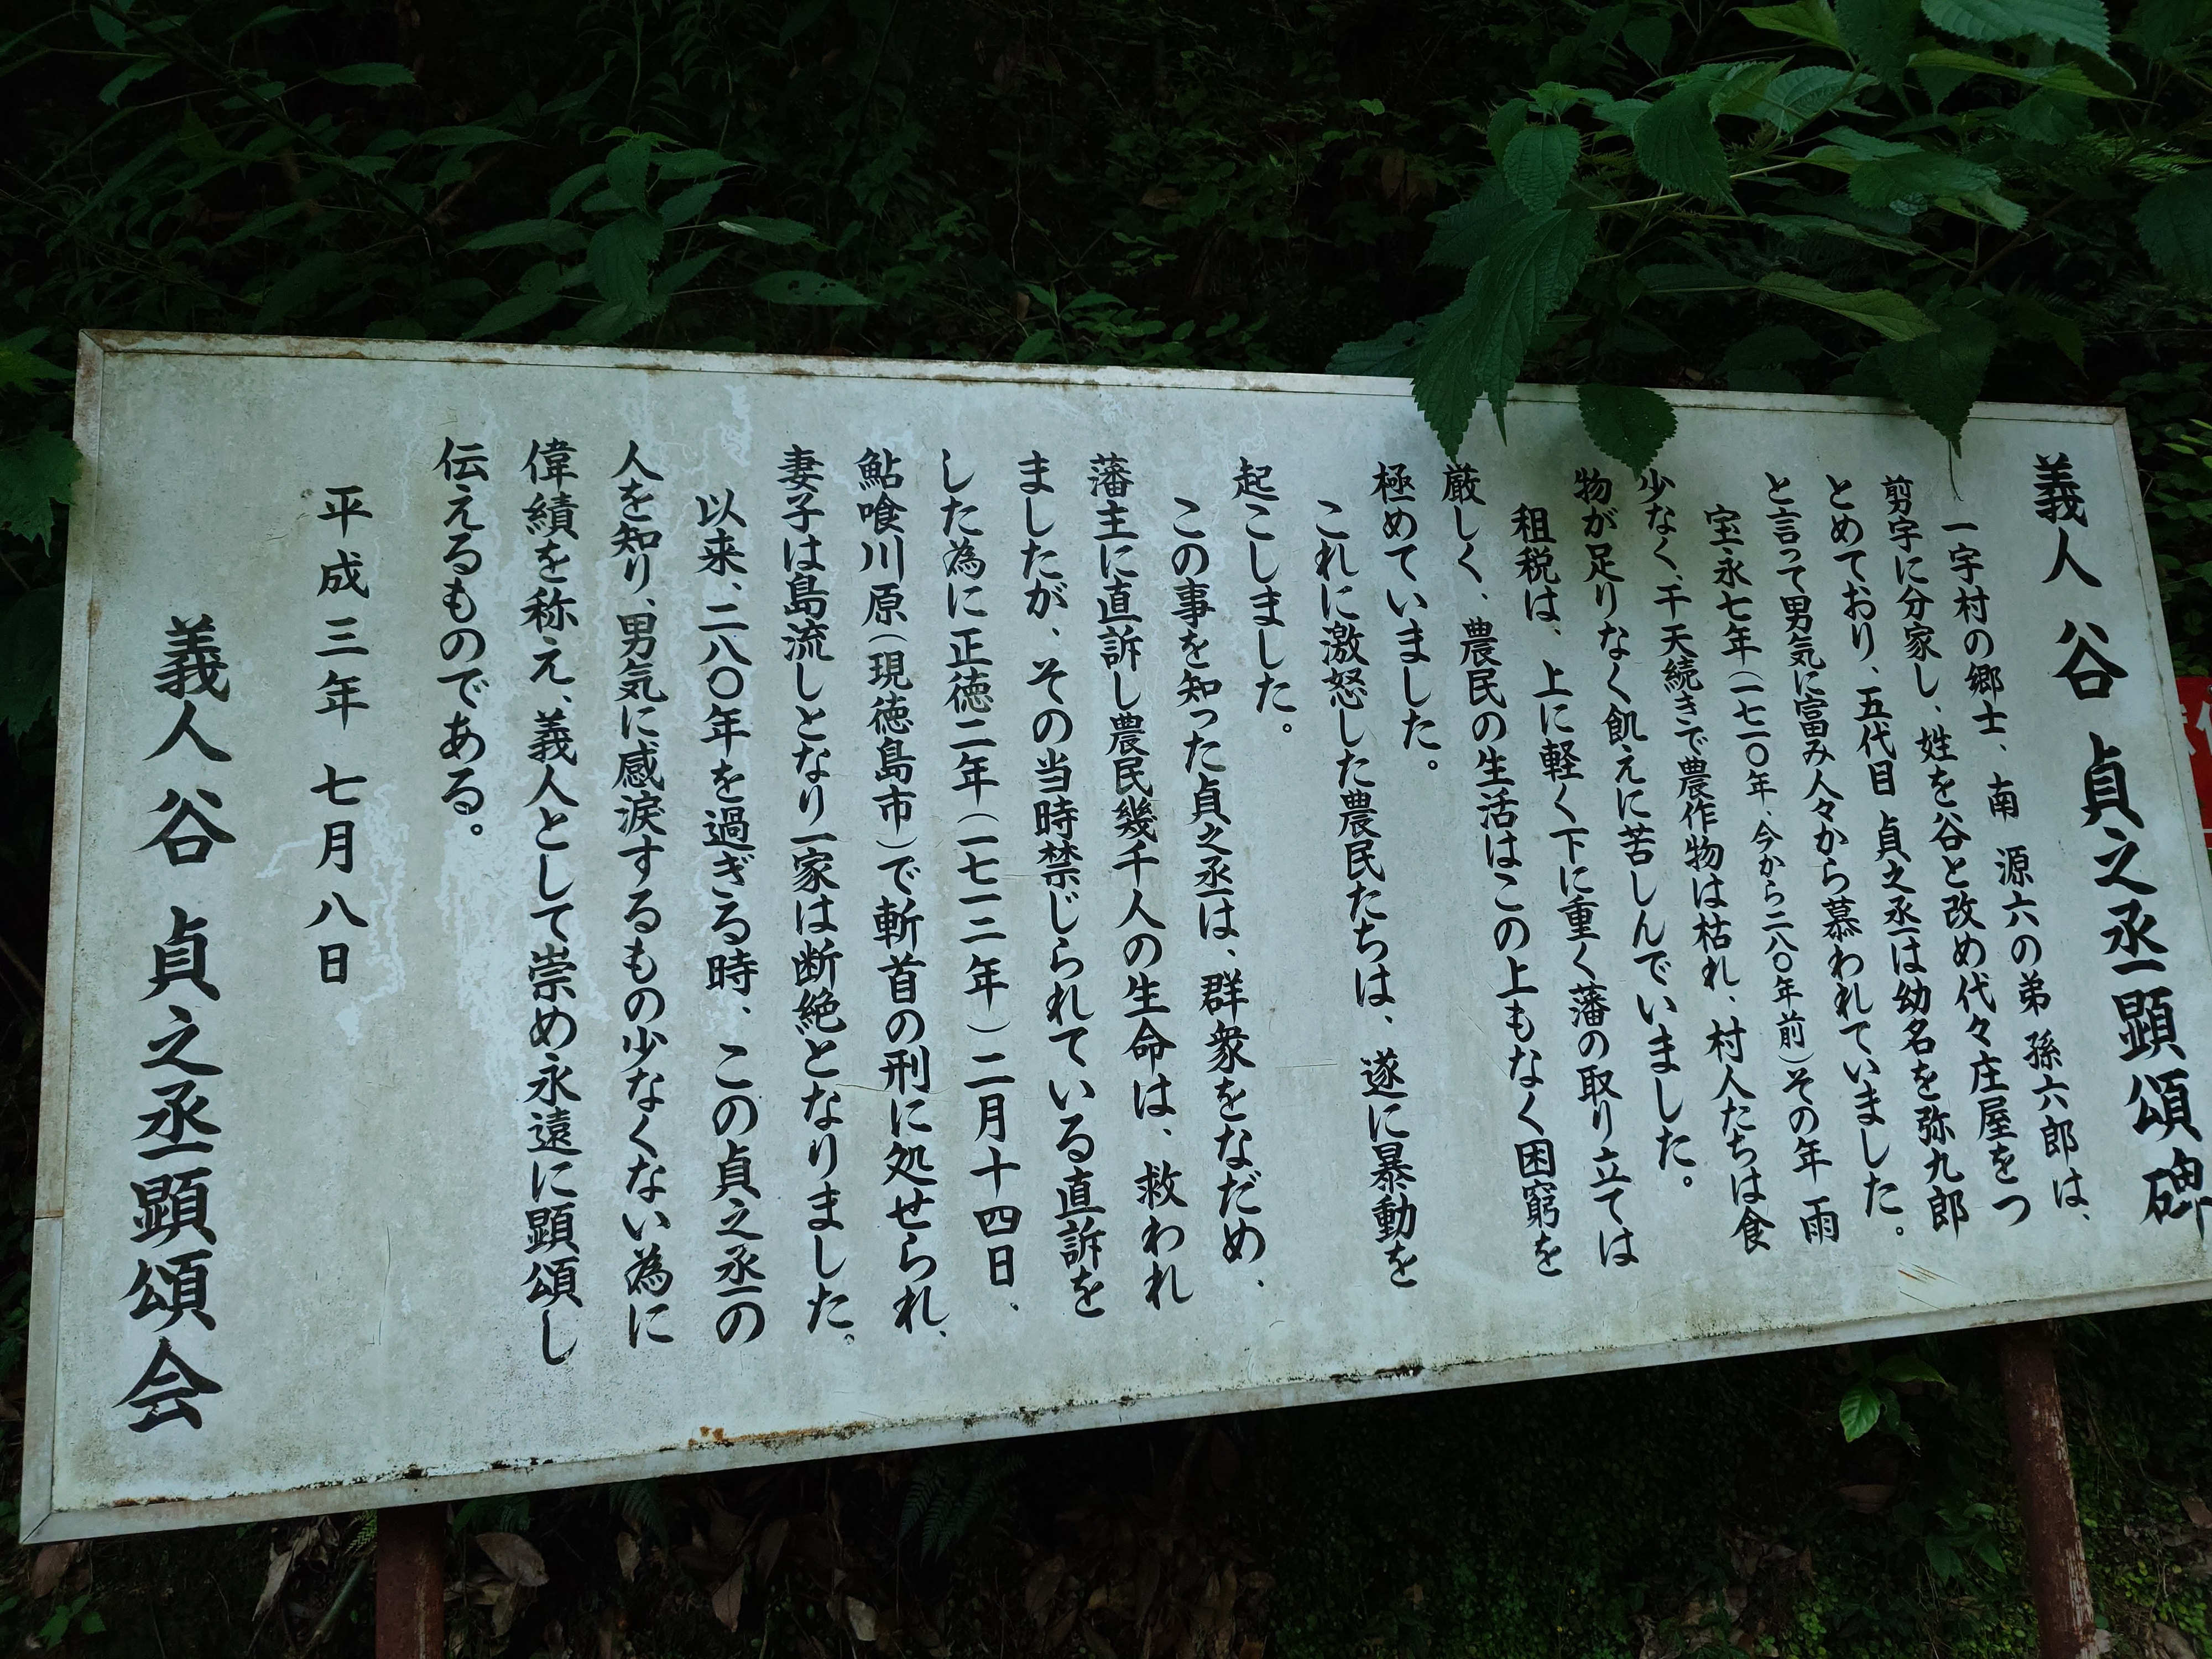 義人 谷 貞之丞顕頌碑
一宇村の郷士、南 源六の弟 孫六郎は、
剪宇に分家し、姓を谷と改め代々庄屋をつ
とめており、五代目 貞之丞は幼名を弥九郎
と言って男気に富み人々から慕われていました。
宝永七年(一七一〇年、今から二八〇年前)その年 雨
少なく、干天続きで農作物は枯れ、村人たちは食
物が足りなく飢えに苦しんでいました。
租税は、上に軽く下に重く藩の取り立ては
厳しく、農民の生活はこの上もなく困窮を
極めていました。
これに激怒した農民たちは、遂に暴動を
起こしました。
この事を知った貞之丞は、群衆をなだめ、
藩主に直訴し農民幾千人の生命は、救われ
ましたが、その当時禁じられている直訴を
した為に正徳二年(一七一二年)二月十四日、
鮎喰川原(現徳島市)で斬首の刑に処せられ、
妻子は島流しとなり一家は断絶となりました。
以来、二八〇年を過ぎる時、この貞之丞の
人を知り、男気に感涙するもの少なくない為に
偉績を称え、義人として崇め永遠に顕頌し
伝えるものである。
平成三年 七月八日
義人 谷 貞之丞顕頌会